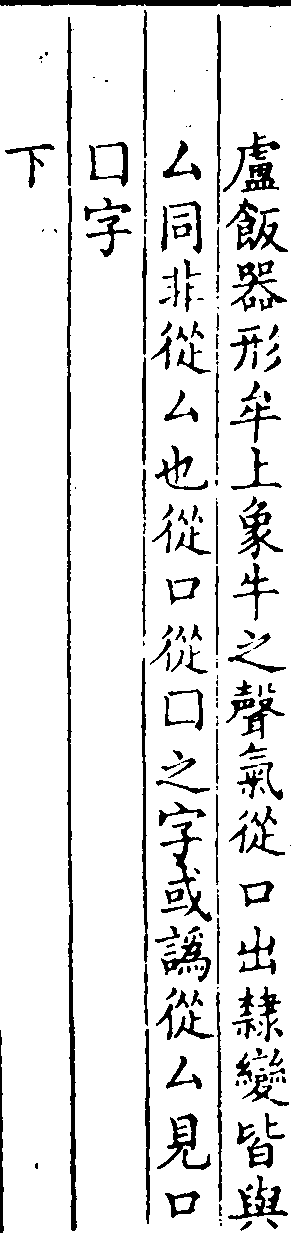 盧飯器形牟上象牛之聲氣從口出隸變皆與
厶同非從厶也從口從囗之字或譌從厶見口
囗字
下